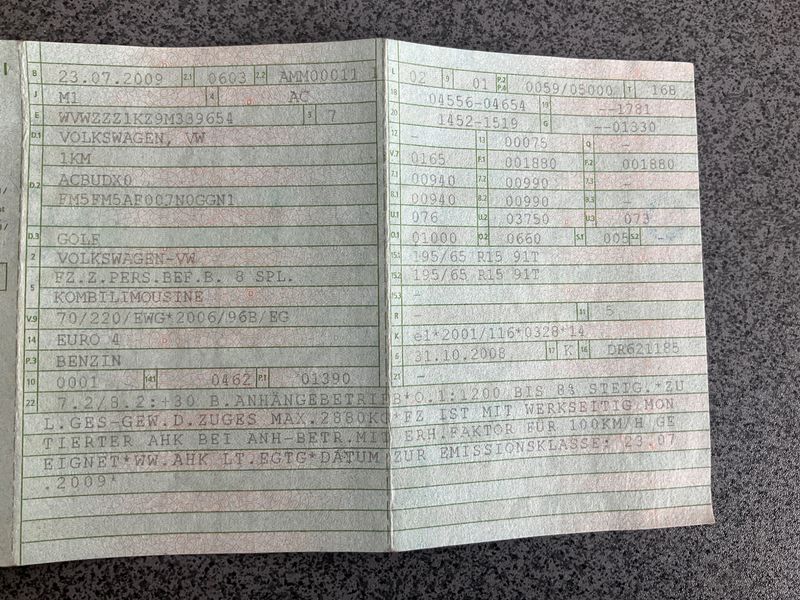 B 23.07.2009 2.1 0603 2.2 AMM00011 1
J M1 4 AC
E WVWZZZ1KZ9M339654 3 7
D.1 VOLKSWAGEN, VW
1KM
D.2 ACBUDX0
FM5FM5AF00JN0GGN1
D.3 GOLF
2 VOLKSWAGEN-VW
FZ.Z.PERS.BEF.B. 8 SPL.
5 KOMBILIMOUSINE
V.9 70/220/EWG*2006/96B/EG
14 EURO 4
P.3 BENZIN
10 0001 14.1 0462 P.1 01390
L 02 9 01 P.2 P.4 0059/05000 T 168
18 04556-04654 19 --1781
20 1452-1519 G --01330
12 - 13 00075 Q -
V.7 0165 F.1 001880 F.2 001880
7.1 00940 7.2 00990 7.3 -
8.1 00940 8.2 00990 8.3 -
U.1 076 U.2 03750 U.3 073
O.1 01000 O.2 0660 S.1 005 S.2 -
15.1 195/65 R15 91T
15.2 195/65 R15 91T
15.3 -
R - 11 5
K e1*2001/116*0328*14
6 31.10.2008 17 K 16 DR621185
21 -
22 7.2/8.2:+30 B.ANHÄNGEBETRIEB*O.1:1200 BIS 8% STEIG.*ZU
L.GES-GEW.D.ZUGES MAX.2880KG*FZ IST MIT WERKSEITIG MON
TIERTER AHK BEI ANH-BETR.MIT ERH.FAKTOR FÜR 100KM/H GE
EIGNET*WW.AHK LT.EGTG*DATUM ZUR EMISSIONSKLASSE: 23.07
.2009*